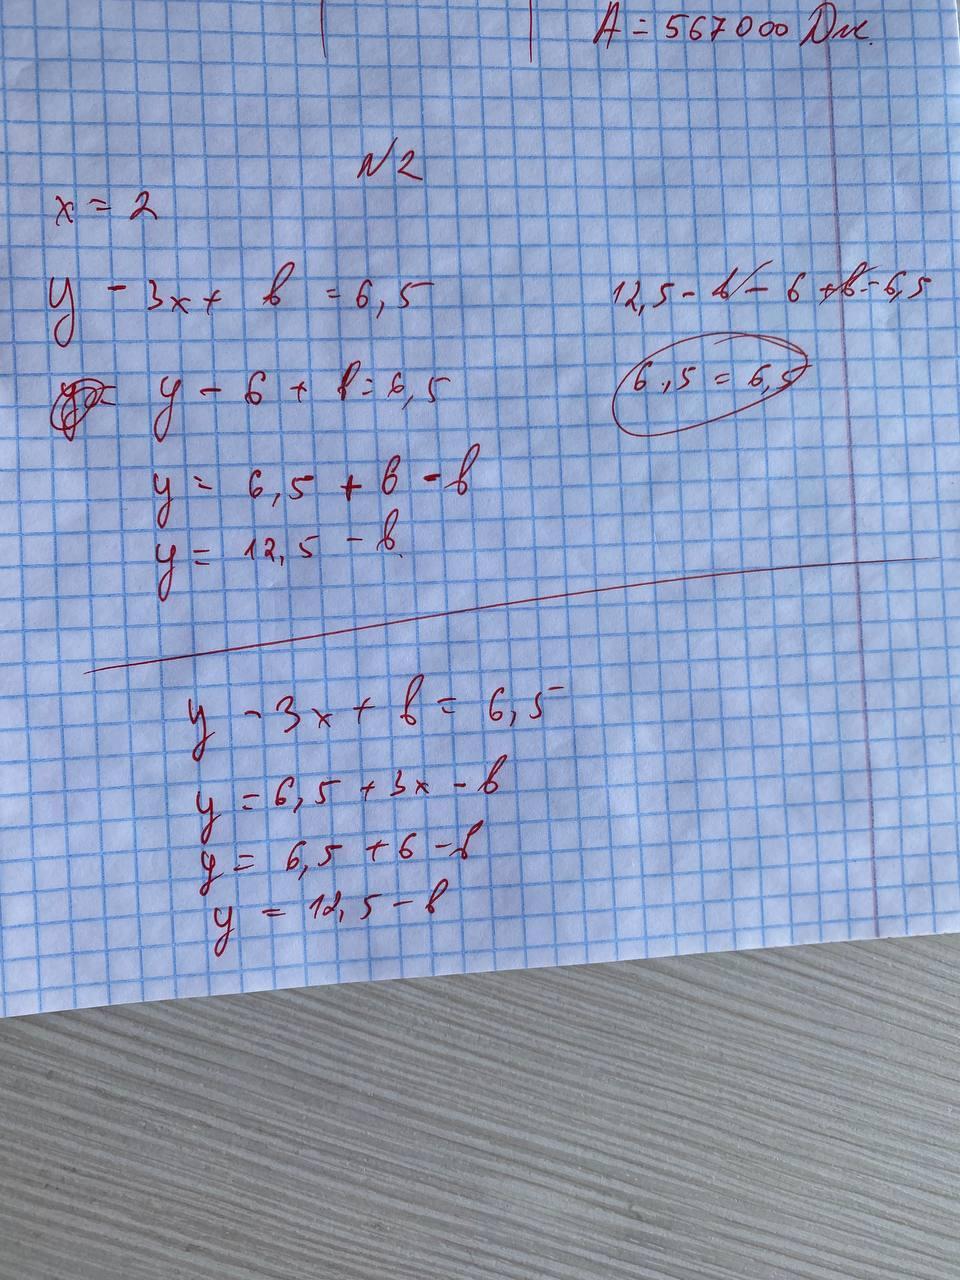 A = 567000 Дж.
N2
x = 2
y - 3x + b = 6,5
12,5 - b - 6 + b = 6,5
y - 6 + b = 6,5
6,5 = 6,5
y = 6,5 + 6 - b
y = 12,5 - b
y - 3x + b = 6,5
y = 6,5 + 3x - b
y = 6,5 + 6 - b
y = 12,5 - b